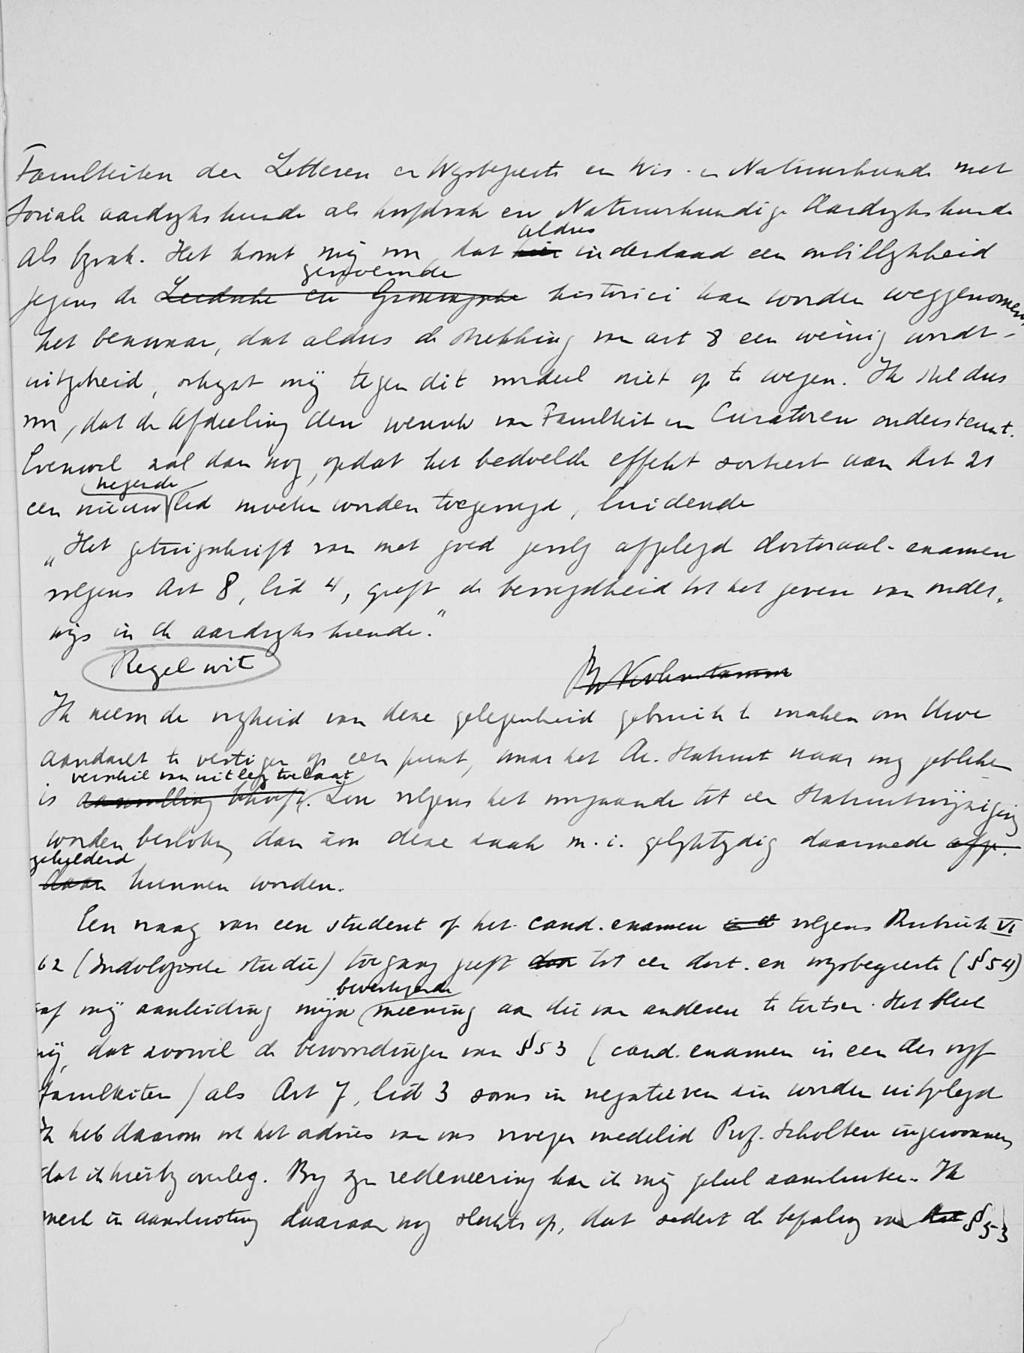 Faculteiten der Letteren en Wysbegeerte en Wis- en Natuurkunde met
Sociale aardrykskunde als hoofdvak en Natuurkundige Aardrykskunde
aldus
als byvak. Het komt mij voor, dat hier inderdaad een onbillykheid
genoemde
jegens de Leidsche en Groningsche historici kan worden weggenomen
Het bezwaar, dat aldus de strekking van art 8 een weinig wordt
uitgebreid, schynt mij tegen dit voordeel niet op te wegen. Ik stel dus
voor, dat de Afdeeling den wensch van Faculteit en Curatoren ondersteunt.
Evenwel zal dan nog, opdat het bedoelde effekt sorteert aan Art 21
negende
een nieuw lid moeten worden toegevoegd, luidende
„Het getuigschrift van met goed gevolg afgelegd doctoraal-examen
volgens Art 8, lid 4, geeft de bevoegdheid tot het geven van onder-
wijs in de aardrykskunde."
Regel wit
Ph Kohnstamm
Ik neem de vryheid van deze gelegenheid gebruik te maken om Uwe
aandacht te vestigen op een punt, waar het Ac. Statuut naar mij gebleken
verschil van uitleg toelaat
is aanvulling behoeft. Zou volgens het voorgaande tot een Statuutwijziging
worden besloten, dan zou deze zaak m.i. gelyktydig daarmede afge-
opgehelderd
daan kunnen worden.
Een vraag van een student of het cand. examen volgens Rubriek VI
62 (Indologische studie) toegang geeft tot een doct. en wysbegeerte (§54)
bevestigende
gaf mij aanleiding mijn meening aan die van anderen te toetsen. Het bleek
mij, dat zoowel de bewoordingen van §53 (cand. examen in een der vyf
Faculteiten) als Art 7, lid 3 soms in negatieven zin worden uitgelegd
Ik heb daarom ook het advies van ons vroeger medelid Prof. Scholten ingewonnen
dat ik hierby overleg. By zyn redeneering kan ik mij geheel aansluiten. Ik
merk in aansluiting daaraan nog slechts op, dat sedert de bepaling van Art §53